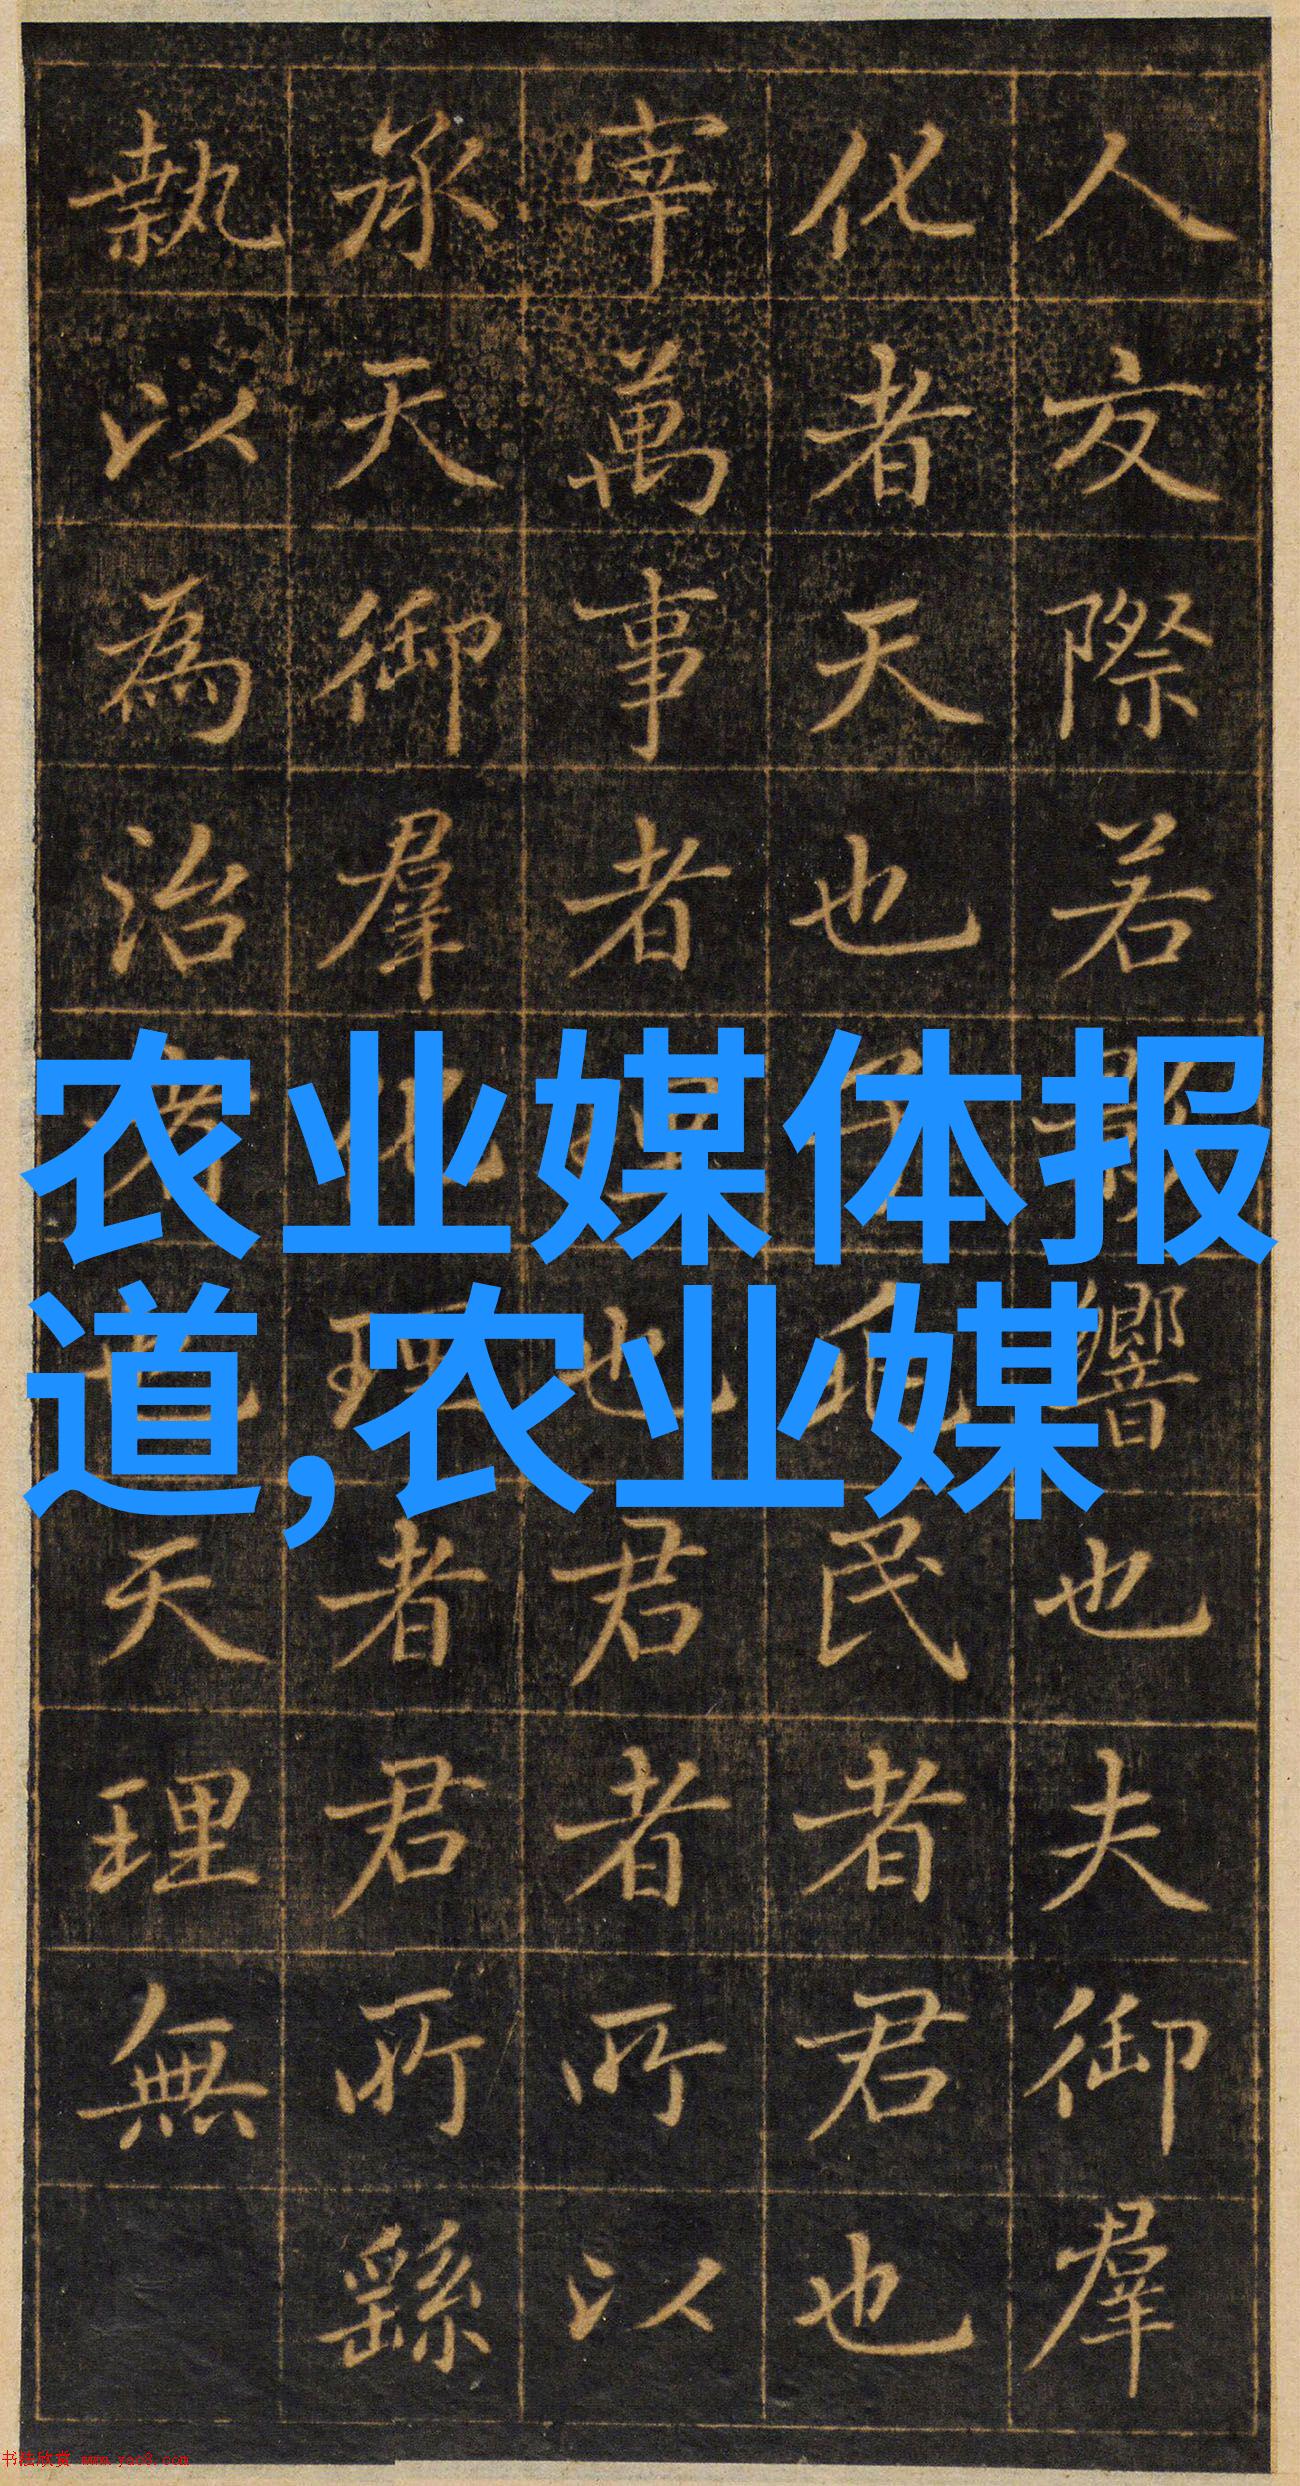 人交際若響也夫御羣
化者天也民者君也
宰萬事者也君者所以
承天御羣化理者君所繇
執以為治天理無
农业媒体报
道,农业媒
书法欣赏 www.yac8.com